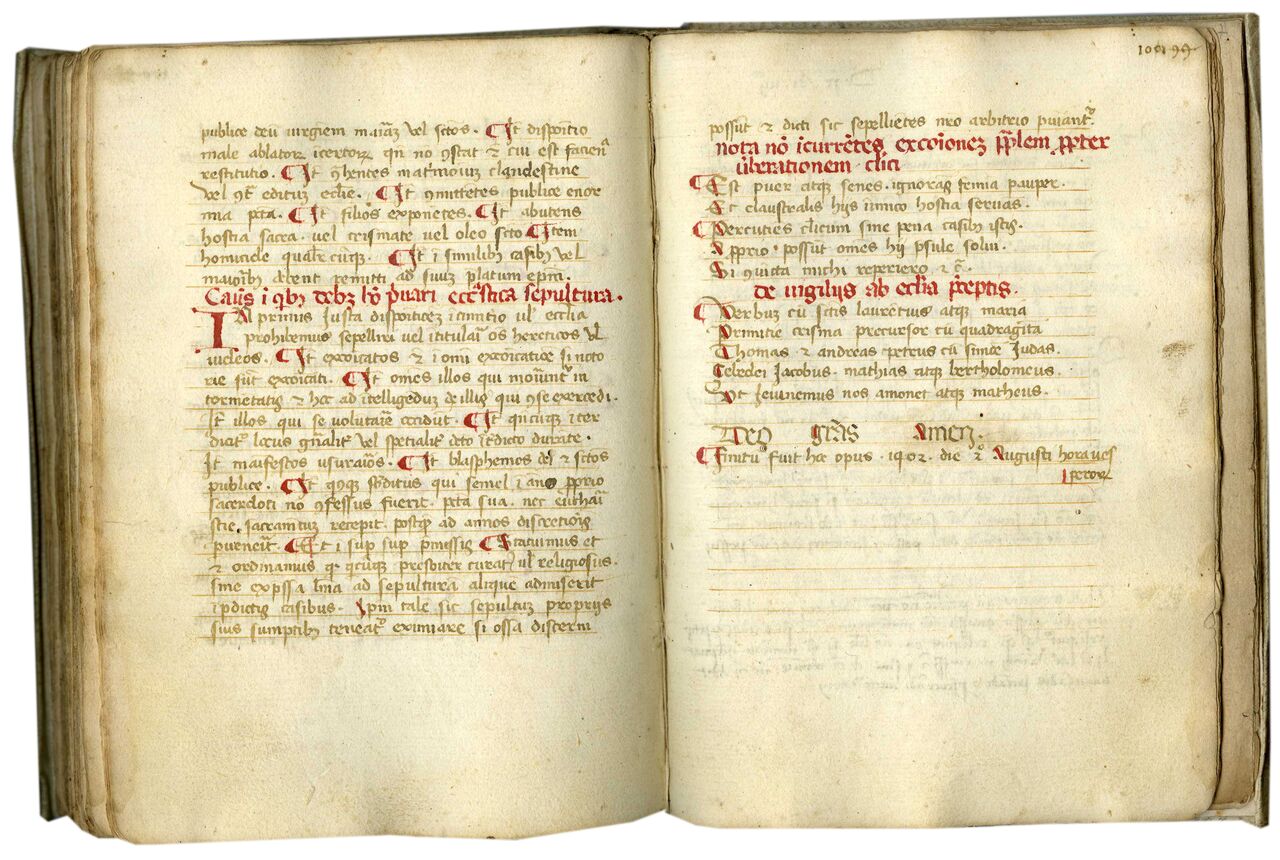 publice deū uirgīem maiāʒ vel sctos. It dispoitio
male ablatoꝝ īcertoꝝ qn̄ no ꝯstat ⁊ cui est facien̄
restitutio. It ꝯhentes mat'moīuʒ clandestine
vel ꝯt̄ editum eccl̄ie. It ꝯmittetes publice enor
mia pctā. It filios exponētes. It abutens
hostia sacra. vel crismate vel oleo scto Item
homicide qualecūqʒ. It ī similibʒ casibʒ vel
maioribʒ debent remitti ad suūʒ p̄latum ep̄m.
Casus ī qbʒ debʒ hō p̄uari eccl̄estica sepultura.
In primis Iusta dispoitiōeʒ ī cimitio ul' eccl̄ia
prohibemus sepelliri vel ītitulatos hereticos ul'
iudeos. It excoīcatos ⁊ ī omi excoīcatiōe si noto
rie sūt excoīcati. It omes illos qui moriunt' in
tormetatis ⁊ hoc ad ītelligēduʒ de illis qui ꝯse exercedi.
It illos qui se volutarie occidūt. It qn̄cūqʒ īter
dicat' locus gn̄alit' vel spetialit' dcto īt'dicto durāte.
It maifestos usurarios. It blasphemos dei ⁊ sctos
publice. It quosqʒ subditus qui semel ī ano pprio
sacerdoti no ꝯfessus fuerit pctā sua. nec euchari
stie. sacramtuʒ recepit postqʒ ad annos discretionis
puenerit. Et ī sup sup p̄missis Statuimus et
⁊ ordinamus qʒ qcūqʒ presbiter curat' ul' religiosus.
sine exp̄ssa l'nia ad sepulturā aliquē admiserit
ī p̄dictis casibus. Ip̄m tale sic sepultuʒ proprijs
suis sumptibʒ teneat' eximiare si ossa discerni
100 99
possūt ⁊ dicti sic sepellietes nr̄o arbitrio puiant'.
nota nō īcurrētes excoīonēʒ pp̄lem ppter
ūberationem clici
Est puer atqʒ senes. ignorās femia pauper.
Et claustralis hijs iūnico hostia seruas.
Percuties clicum sine pena casibʒ istis.
A pprio possūt omes hij p̄sule solui.
Si ꝯuicta michi reperiero ⁊ c̄.
de uigilijs ab eccl̄ia p̄ceptis.
Verbuʒ cū sctis laurētius atqʒ maria
Primitie crisma precursor cū quadragita
Thomas ⁊ andreas petrus cū simōe Judas.
Cebedei Jacobus. mathias atqʒ bertholomeus.
Vt Jeiunemus nos amonet atqʒ matheus.
Deo gr̄as Amen.
Finitū fuit hoc opus. 1402. die 2° Augusti hora ues
peroꝝ